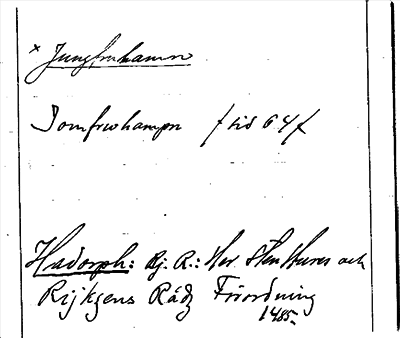 × Jungfruhamn
Jomfrwhampn f sid 64 f
Hadorph: Bj. R.: Her Sten Stures och
Rijkzens Rådz Förordning
1485.